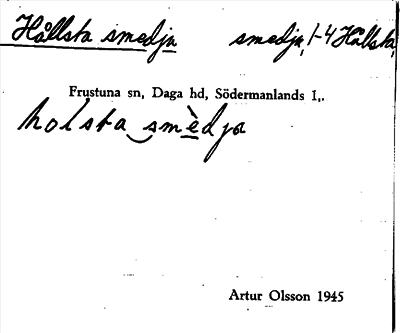 Hållsta smedja smedja, 1-4 Hållsta,
Frustuna sn, Daga hd, Södermanlands l.
holsta smèdja
Artur Olsson 1945